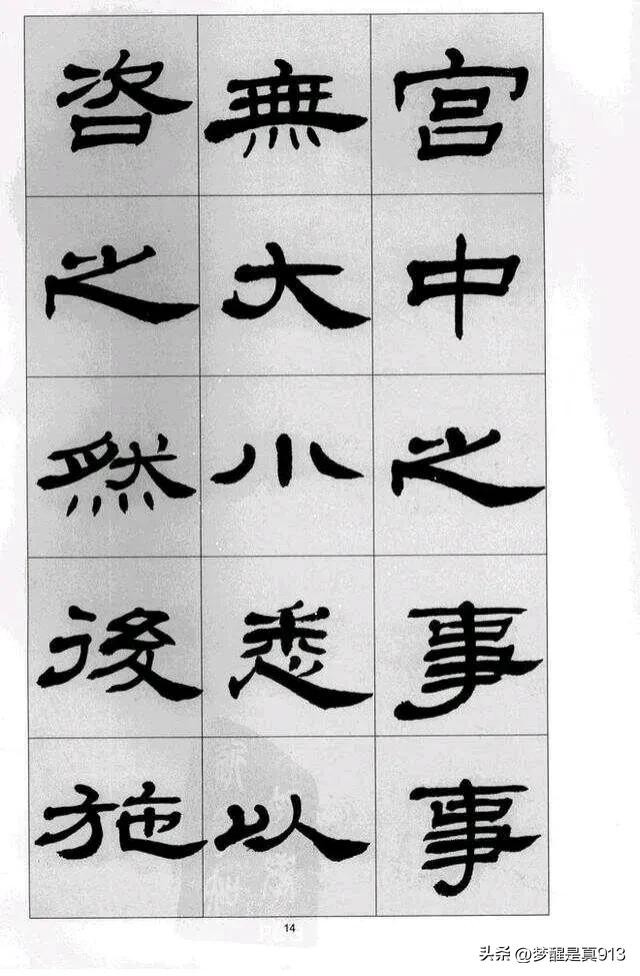 宫中之事事
無大小悉以
咨之然後施
14
头条 @梦醒是真913